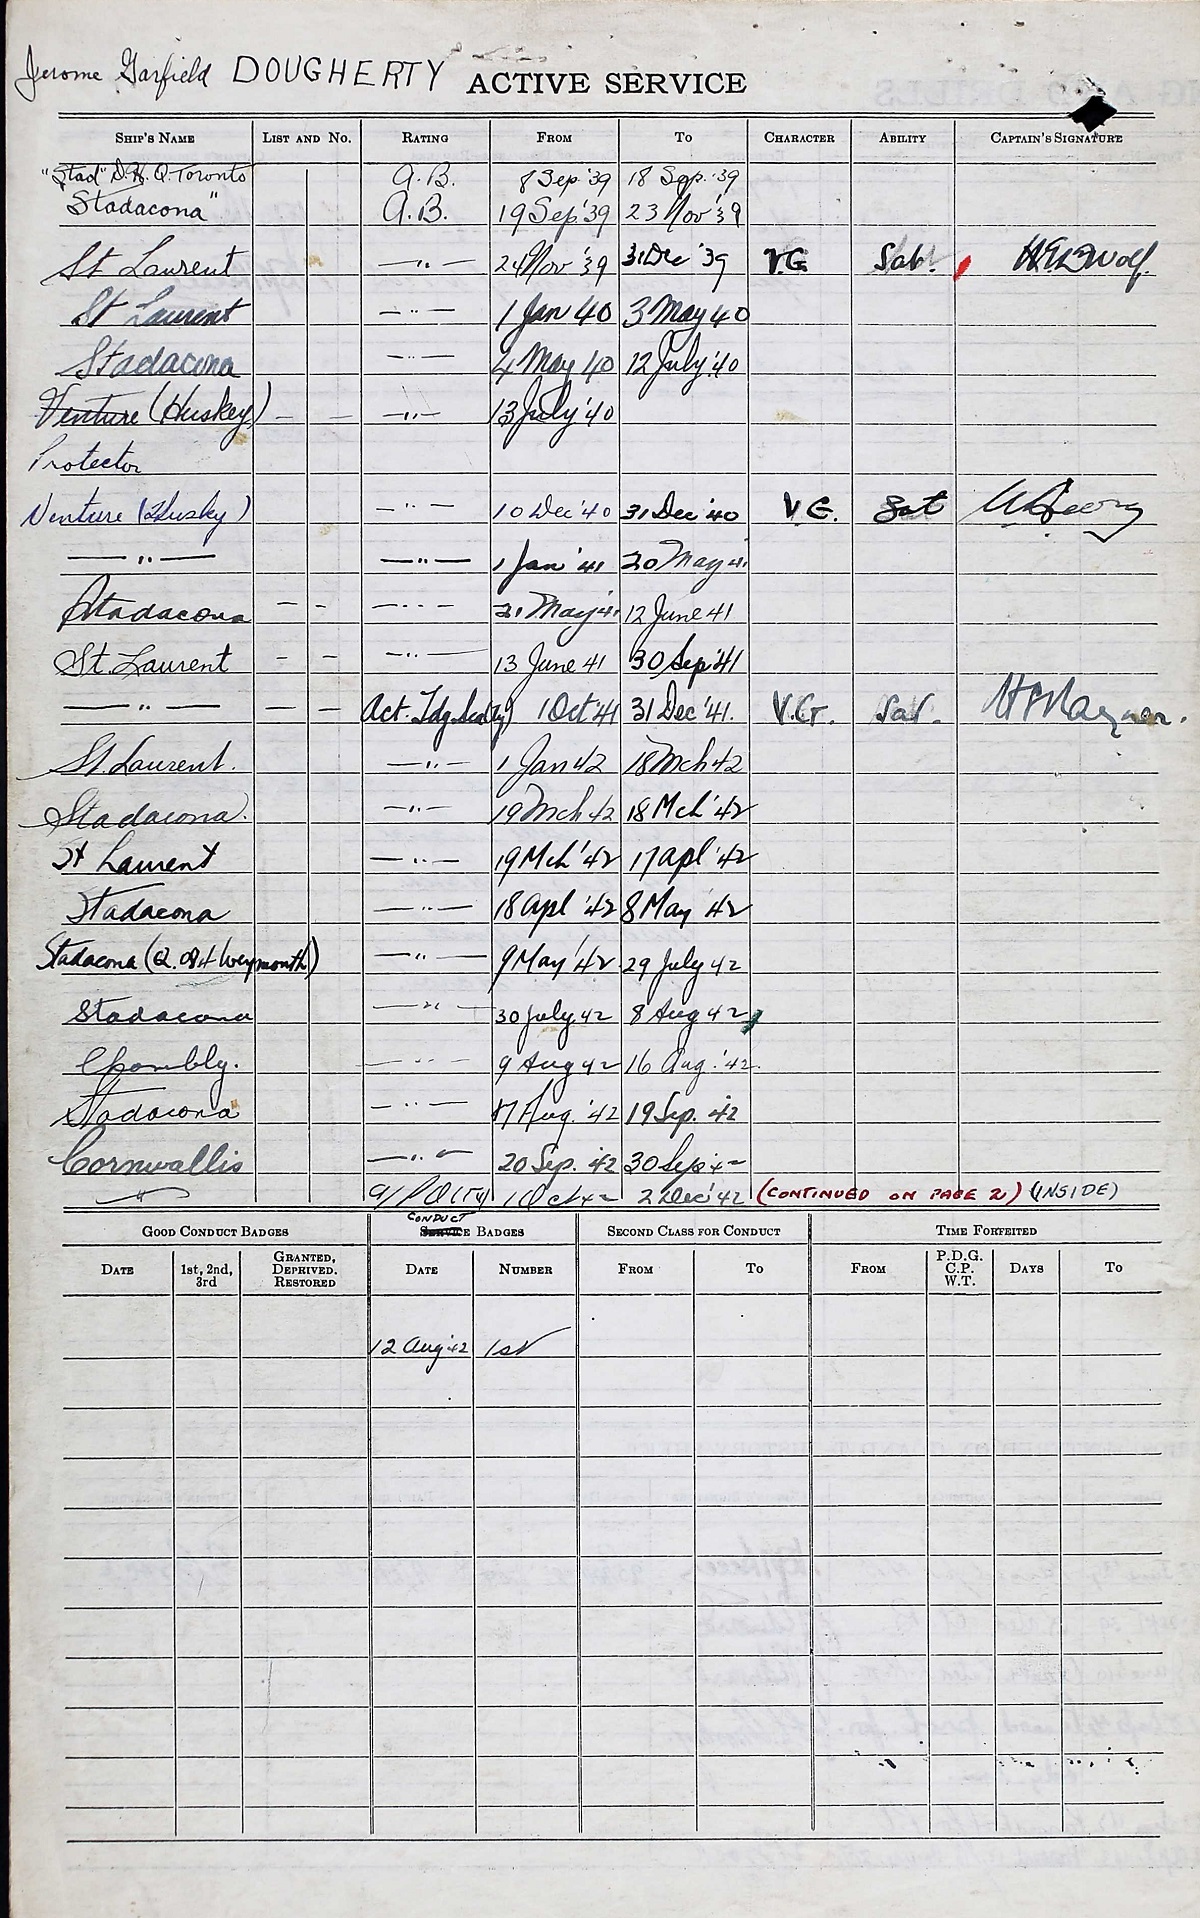 Jerome Garfield DOUGHERTY ACTIVE SERVICE
SHIP'S NAME LIST AND NO. RATING FROM TO CHARACTER ABILITY CAPTAIN'S SIGNATURE
"Stad" D.H.Q. Toronto A.B. 8 Sep '39 18 Sep. '39
Stadacona" A.B. 19 Sep. '39 23 Nov '39
St Laurent —"— 24 Nov '39 31 Dec '39 V.G. Sat.
St Laurent —"— 1 Jan 40 3 May 40
Stadacona —"— 4 May 40 12 July '40
Venture (Huskey) — — —"— 13 July '40
Protector
Venture (Husky) —"— 10 Dec '40 31 Dec '40 V.G. Sat
—"— —"— 1 Jan '41 20 May 41
Stadacona — — —"— 21 May 41 12 June 41
St. Laurent — — —"— 13 June 41 30 Sep '41
—"— — — Act. Ldg. Sea (Ty) 1 Oct '41 31 Dec '41. V.G. Sat.
St. Laurent. —"— 1 Jan 42 18 Mch 42
Stadacona. —"— 19 Mch 42 18 Mch '42
St Laurent —"— 19 Mch '42 17 Apl '42
Stadacona —"— 18 Apl '42 8 May '42
Stadacona (Q.084 Weymouth) —"— 9 May '42 29 July 42
Stadacona —"— 30 July 42 8 Aug 42
Chambly. —"— 9 Aug 42 16 Aug. '42
Stadacona —"— 17 Aug. '42 19 Sep. '42
Cornwallis —"— 20 Sep. '42 30 Sep 42
—"— A/PO (Ty) 1 Oct 42 2 Dec '42 (CONTINUED ON PAGE 2) (INSIDE)
GOOD CONDUCT BADGES CONDUCT SERVICE BADGES SECOND CLASS FOR CONDUCT TIME FORFEITED
DATE 1st, 2nd, 3rd GRANTED, DEPRIVED. RESTORED DATE NUMBER FROM TO FROM P.D.G. C.P. W.T. DAYS TO
12 Aug '42 1st